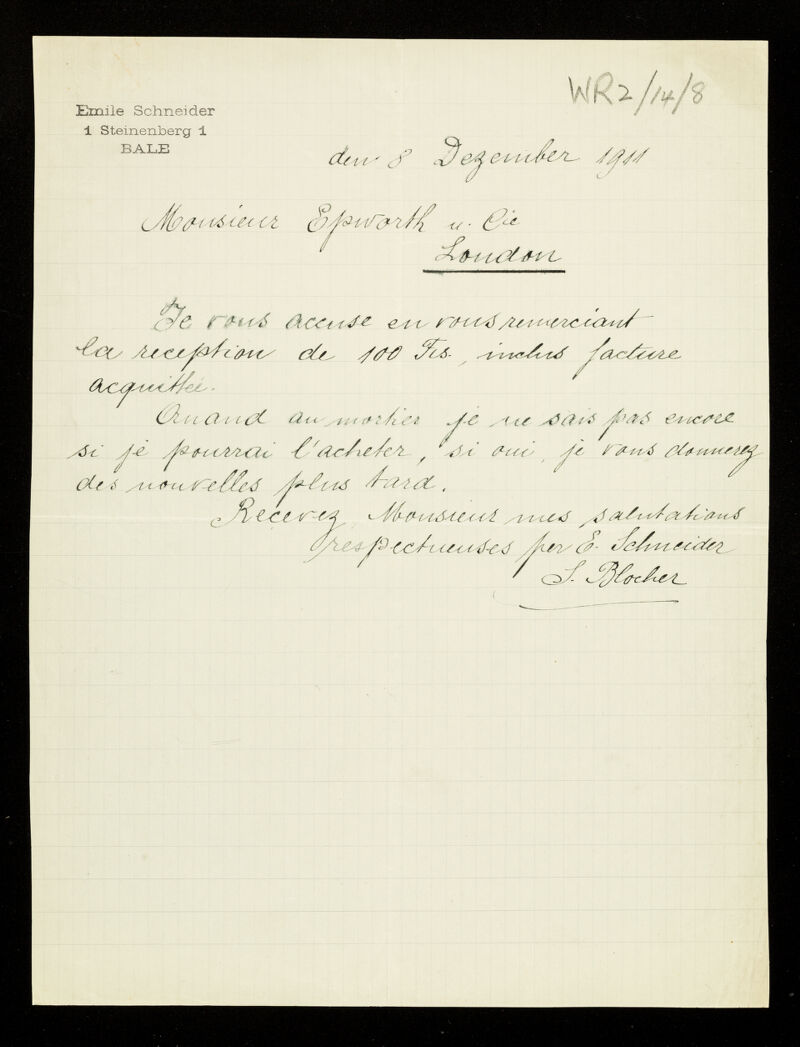 WR2/14/8
Emile Schneider
1 Steinenberg 1
BALE
den 8 Dezember 1911
Monsieur Epworth u. Cie
London
Je vous accuse en vous remerciant
la reception de 100 Frs., inclus facture
acquittée.
Quand au mortier je ne sais pas encore
si je pourrai l'acheter, si oui, je vous donnerez
des nouvelles plus tard.
Recevez, Monsieur mes salutations
respectueuses per E. Schneider
S. Blocher